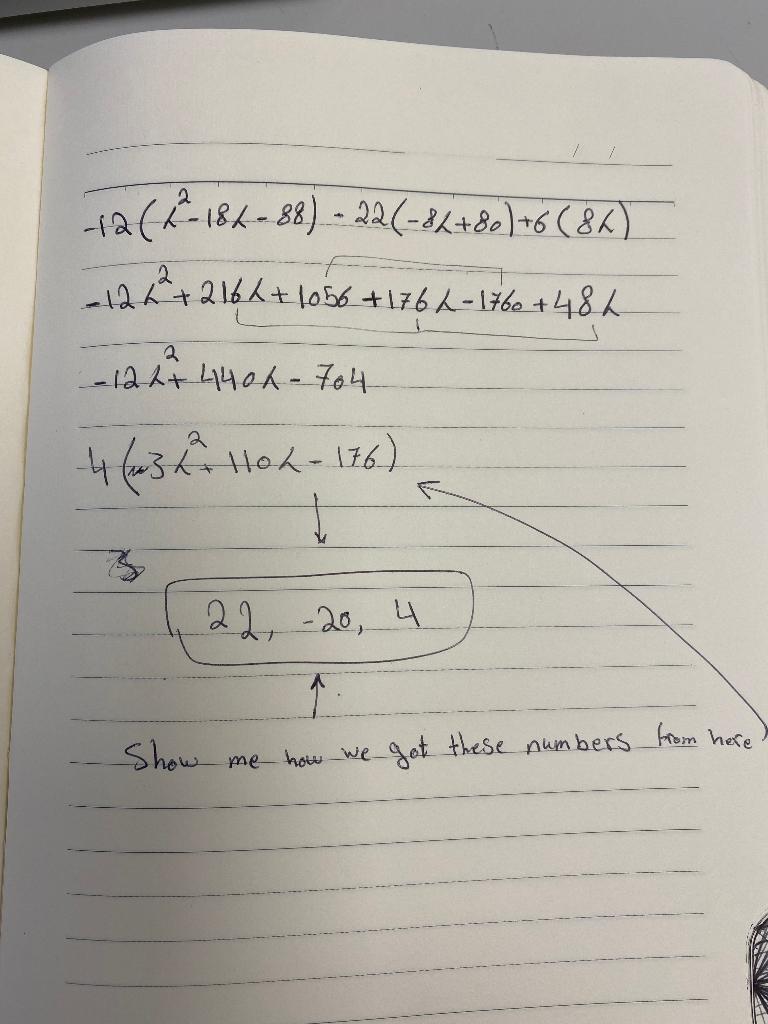 -12(λ²-18λ-88) - 22(-8λ+80)+6(8λ)
-12λ²+216λ+1056+176λ-1760+48λ
-12λ²+440λ-704
4(-3λ²+110λ-176)
22, -20, 4
Show me how we got these numbers from here